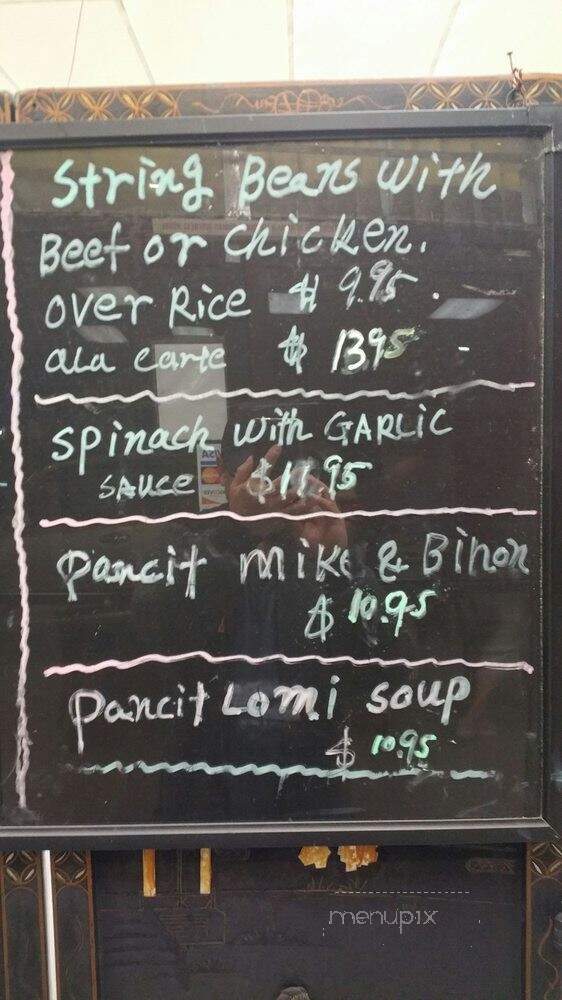 String Beans with
Beef or chicken.
over Rice $ 9.95.
ala carte $ 13.95 -
Spinach with GARLIC
SAUCE $11.95
pancit mike & Bihon
$ 10.95
pancit Lomi soup
$ 10.95
VISA
menupix